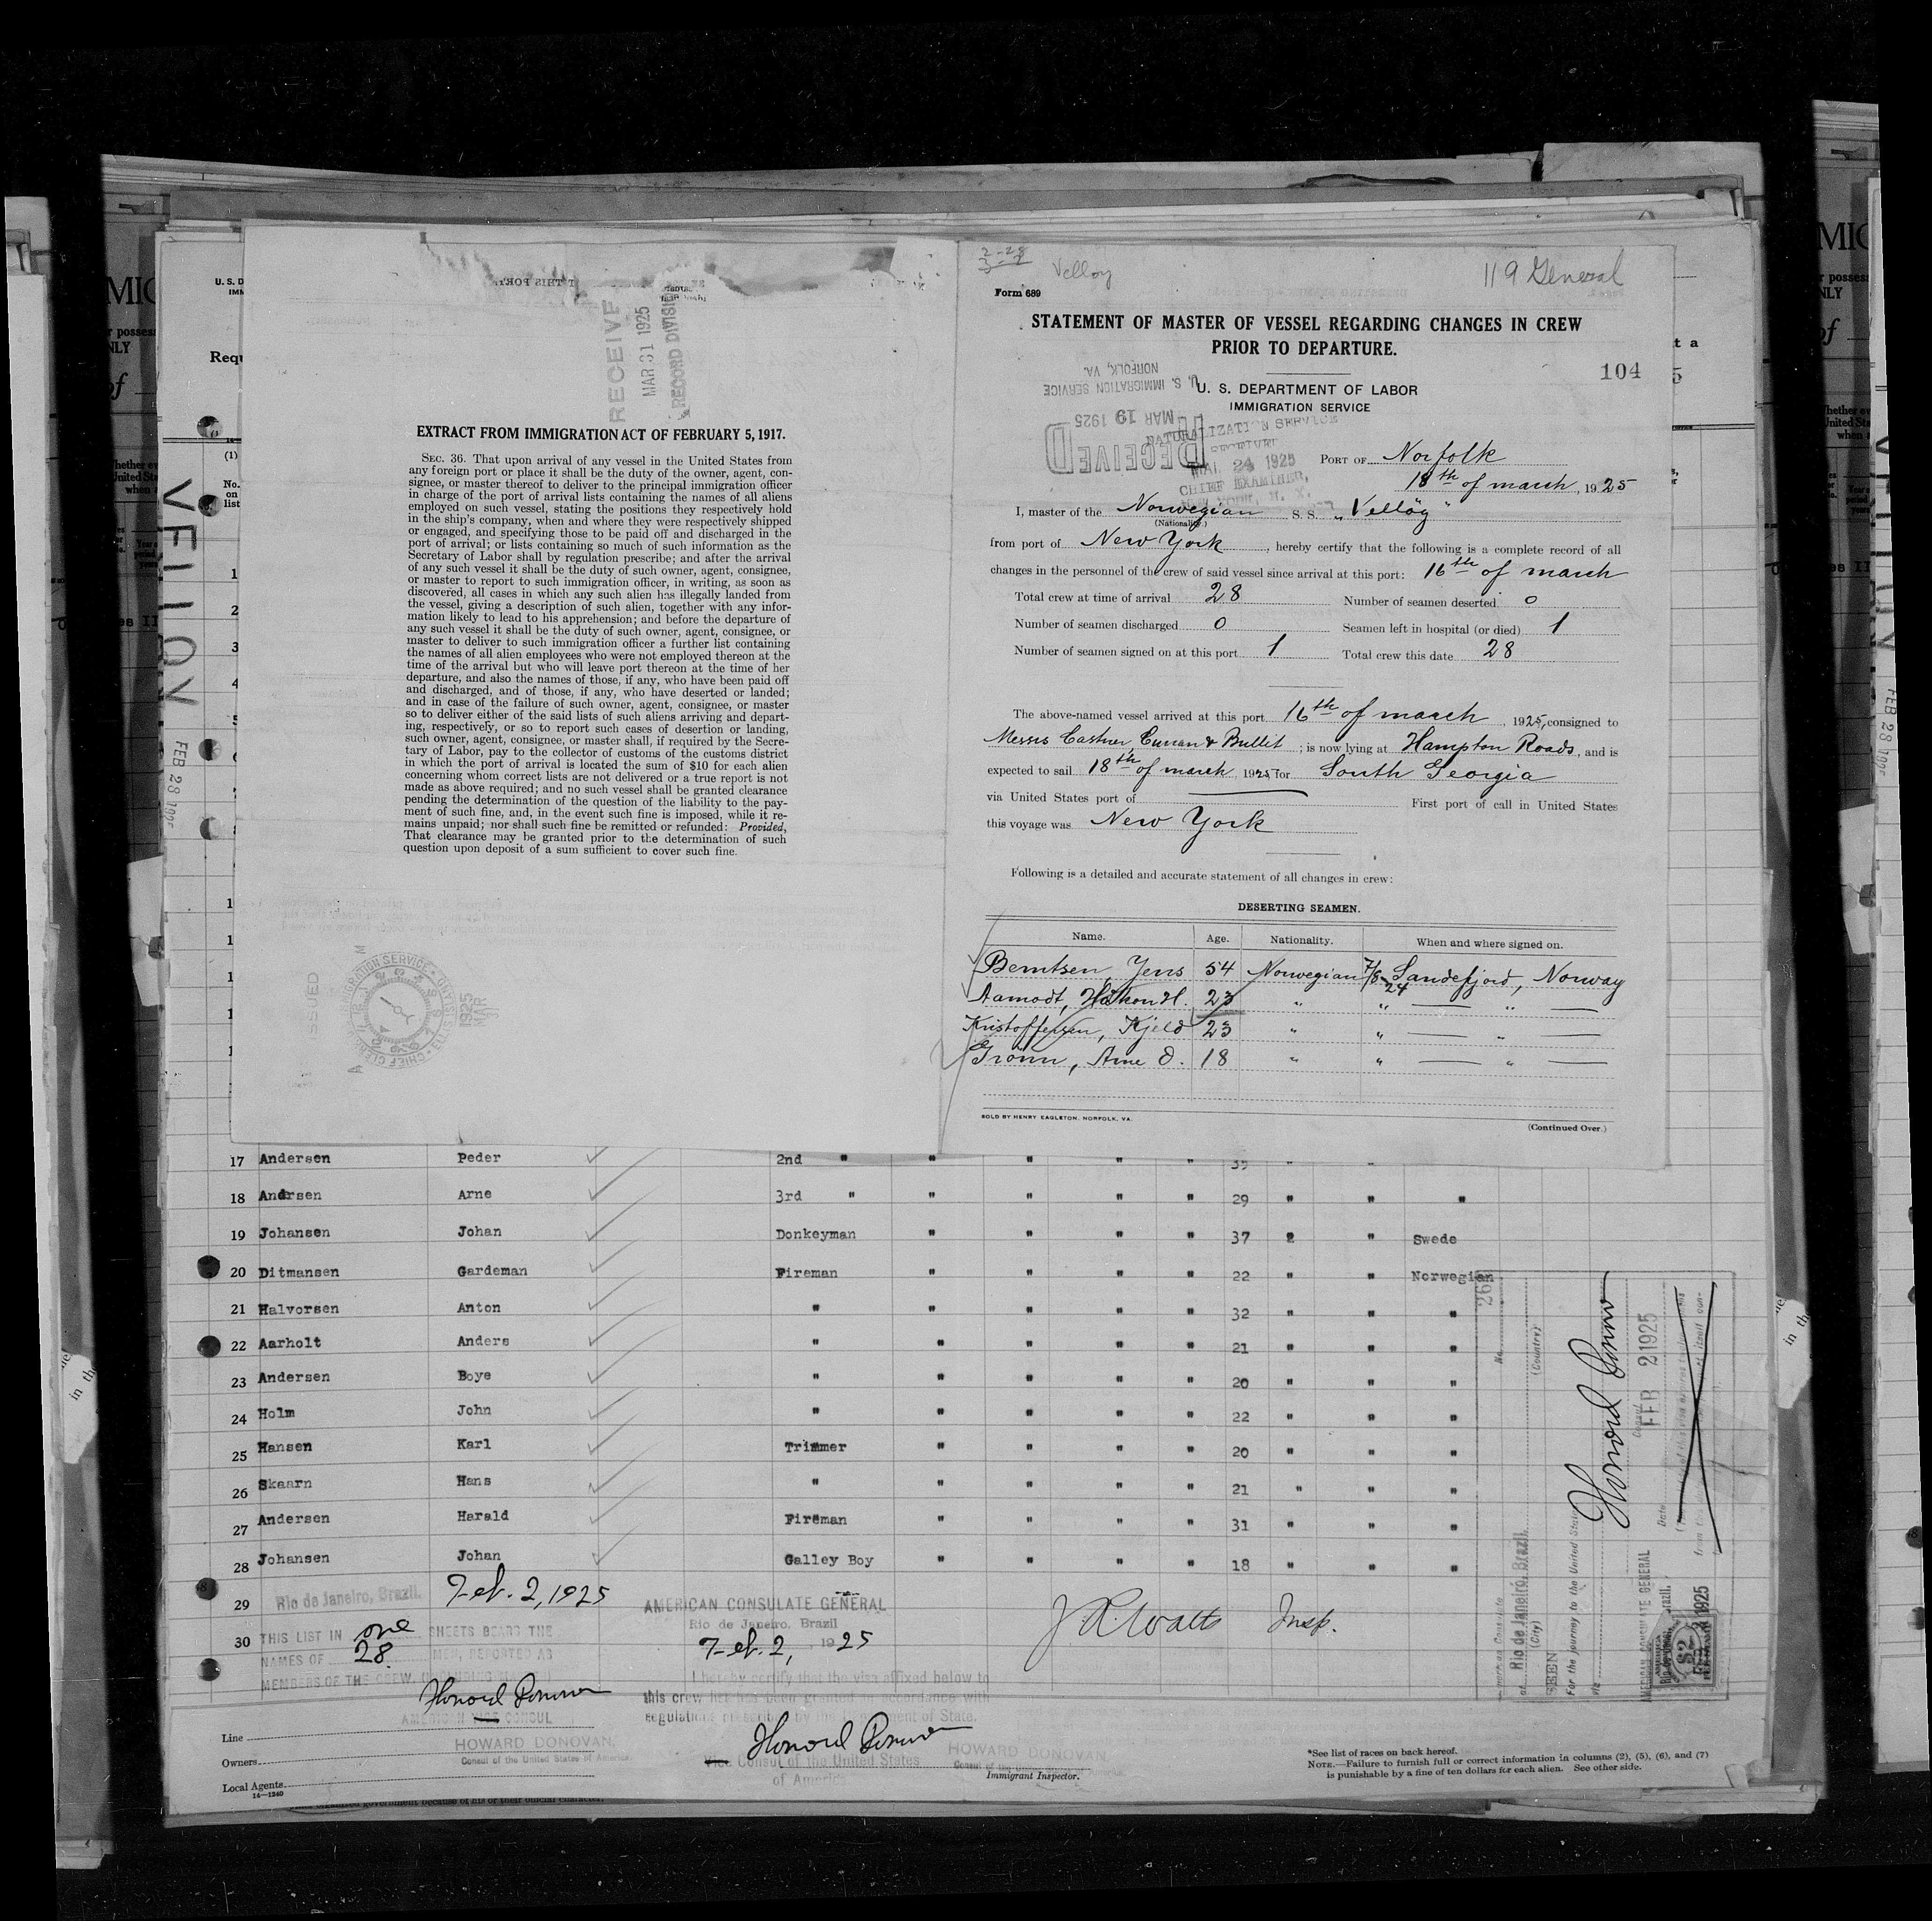 EXTRACT FROM IMMIGRATION ACT OF FEBRUARY 5, 1917.
SEC. 36. That upon arrival of any vessel in the United States from
any foreign port or place it shall be the duty of the owner, agent, con-
signee, or master thereof to deliver to the principal immigration officer
in charge of the port of arrival lists containing the names of all aliens
employed on such vessel, stating the positions they respectively hold
in the ship's company, when and where they were respectively shipped
or engaged, and specifying those to be paid off and discharged in the
port of arrival; or lists containing so much of such information as the
Secretary of Labor shall by regulation prescribe; and after the arrival
of any such vessel it shall be the duty of such owner, agent, consignee,
or master to report to such immigration officer, in writing, as soon as
discovered, all cases in which any such alien has illegally landed from
the vessel, giving a description of such alien, together with any infor-
mation likely to lead to his apprehension; and before the departure of
any such vessel it shall be the duty of such owner, agent, consignee, or
master to deliver to such immigration officer a further list containing
the names of all alien employees who were not employed thereon at the
time of the arrival but who will leave port thereon at the time of her
departure, and also the names of those, if any, who have been paid off
and discharged, and of those, if any, who have deserted or landed;
and in case of the failure of such owner, agent, consignee, or master
so to deliver either of the said lists of such aliens arriving and depart-
ing, respectively, or so to report such cases of desertion or landing,
such owner, agent, consignee, or master shall, if required by the Secre-
tary of Labor, pay to the collector of customs of the customs district
in which the port of arrival is located the sum of $10 for each alien
concerning whom correct lists are not delivered or a true report is not
made as above required; and no such vessel shall be granted clearance
pending the determination of the question of the liability to the pay-
ment of such fine, and, in the event such fine is imposed, while it re-
mains unpaid; nor shall such fine be remitted or refunded: Provided,
That clearance may be granted prior to the determination of such
question upon deposit of a sum sufficient to cover such fine.
RECEIVE
MAR 31 1925
RECORD DIVISI
VELLOY
FEB 28 1925
ISSUED
IMMIGRATION SERVICE
1925 MAR 31
Velloy
119 General
Form 689
STATEMENT OF MASTER OF VESSEL REGARDING CHANGES IN CREW
PRIOR TO DEPARTURE.
104
U. S. IMMIGRATION SERVICE
NORFOLK, VA.
MAR 19 1925
RECEIVED
U. S. DEPARTMENT OF LABOR
IMMIGRATION SERVICE
NATURALIZATION SERVICE
RECEIVED
MAR 24 1925
CHIEF EXAMINER,
NEW YORK, N. Y.
PORT OF Norfolk
18th of march, 1925
I, master of the Norwegian S. S. "Vellöy"
(Nationality.)
from port of New York, hereby certify that the following is a complete record of all
changes in the personnel of the crew of said vessel since arrival at this port: 16th of march
Total crew at time of arrival 28 Number of seamen deserted. 0
Number of seamen discharged 0 Seamen left in hospital (or died) 1
Number of seamen signed on at this port 1 Total crew this date 28
The above-named vessel arrived at this port 16th of march, 1925, consigned to
Messrs Castner, Curran & Bullit; is now lying at Hampton Roads, and is
expected to sail 18th of march, 1925 for South Georgia
via United States port of First port of call in United States
this voyage was New York
Following is a detailed and accurate statement of all changes in crew:
DESERTING SEAMEN.
Name. Age. Nationality. When and where signed on.
Berntsen, Jens 54 Norwegian 7/8-24 Sandefjord, Norway
Aamodt, Håkon H. 23 " " — " —
Kristoffersen, Kjeld 23 " " — " —
Grönn, Arne O. 18 " " — " —
SOLD BY HENRY EAGLETON, NORFOLK, VA.
(Continued Over.)
17 Andersen Peder 2nd " " " " " 39 " "
18 Andrsen Arne 3rd " " " " " 29 " " "
19 Johansen Johan Donkeyman " " " " 37 " " Swede
20 Ditmansen Gardeman Fireman " " " " 22 " " Norwegian
21 Halvorsen Anton " " " " " 32 " " "
22 Aarholt Anders " " " " " 21 " " "
23 Andersen Boye " " " " " 20 " " "
24 Holm John " " " " " 22 " " "
25 Hansen Karl Trimmer " " " " 20 " " "
26 Skaarn Hans " " " " " 21 " " "
27 Andersen Harald Fireman " " " " 31 " " "
28 Johansen Johan Galley Boy " " " " 18 " " "
29 Rio de Janeiro, Brazil. Feb. 2, 1925
30 THIS LIST IN one SHEETS BEARS THE
NAMES OF 28 MEN, REPORTED AS
MEMBERS OF THE CREW,
Howard Donovan
AMERICAN VICE CONSUL
HOWARD DONOVAN,
Consul of the United States of America.
AMERICAN CONSULATE GENERAL
Rio de Janeiro, Brazil
Feb. 2, 1925
I hereby certify that the visa affixed below to
this crew list has been granted in accordance with
regulations prescribed by the Department of State.
Howard Donovan
Vice Consul of the United States
of America
HOWARD DONOVAN,
J. R. Watts Insp.
Immigrant Inspector.
Line
Owners
Local Agents
14—1240
*See list of races on back hereof.
NOTE.—Failure to furnish full or correct information in columns (2), (5), (6), and (7)
is punishable by a fine of ten dollars for each alien. See other side.
No. 269
(Country)
at Rio de Janeiro, Brazil.
(City)
SEEN
For the journey to the United States
via
Howard Donovan
Consul
Date FEB 2 1925
AMERICAN CONSULATE GENERAL